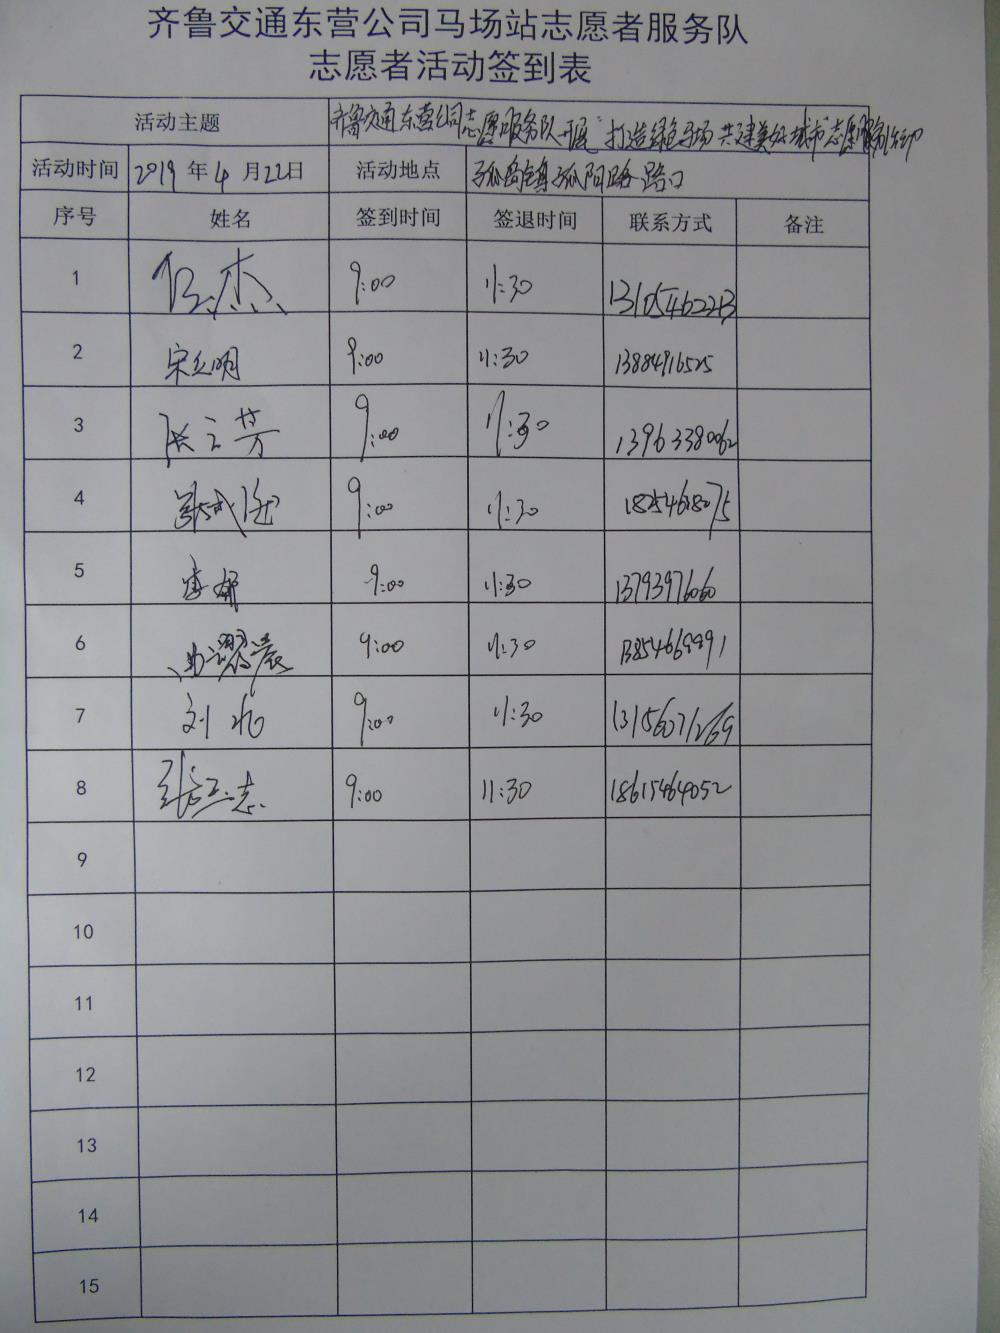 齐鲁交通东营公司马场站志愿者服务队
志愿者活动签到表
活动主题 齐鲁交通东营公司志愿服务队开展"打造绿色马场 共建美好城市"志愿服务活动
活动时间 2019 年 4 月 22日 活动地点 孤岛镇孤阳路路口
序号 姓名 签到时间 签退时间 联系方式 备注
1 任杰 9:00 11:30
2 宋立明 9:00 11:30 13884916525
3 张云芳 9:00 11:30 13963380062
4 9:00 11:30 18254618075
5 李娜 9:00 11:30 13793976060
6 9:00 11:30
7 刘 9:00 11:30 13156071269
8 志 9:00 11:30 18615464052
9
10
11
12
13
14
15